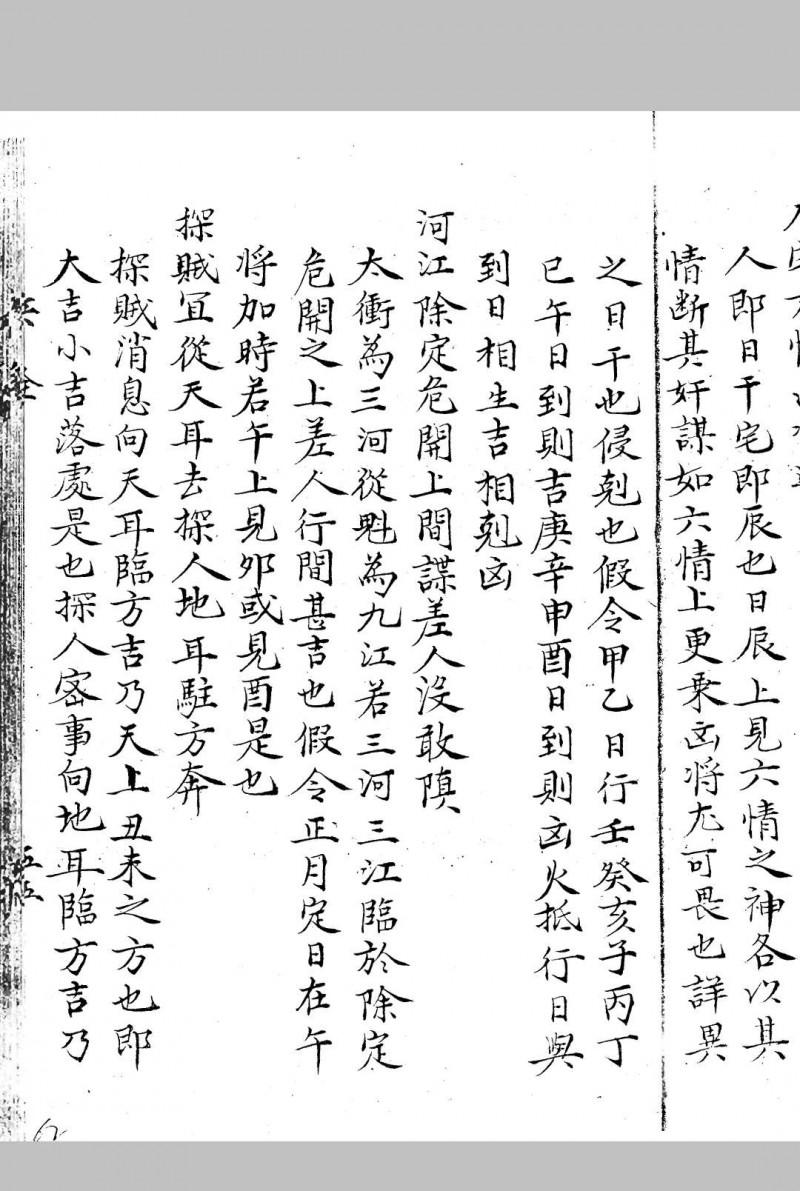 人即日干宅即辰也日辰上見六情之神各以其
情断其奸謀如六情上更乗凶将尤可畏也詳異
之日干也侵剋也假令甲乙日行壬癸亥子丙丁
巳午日到則吉庚辛申酉日到則凶火抵行日與
到日相生吉相剋凶
河江除定危開上間諜差人没敢隕
太衝為三河從魁為九江若三河三江臨於除定
危開之上差人行間甚吉也假令正月定日在午
将加時若午上見夘或見酉是也
探賊冝從天耳去探人地耳駐方奔
探賊消息向天耳臨方吉乃天上丑未之方也即
大吉小吉落處是也探人宻事向地耳臨方吉乃
五五